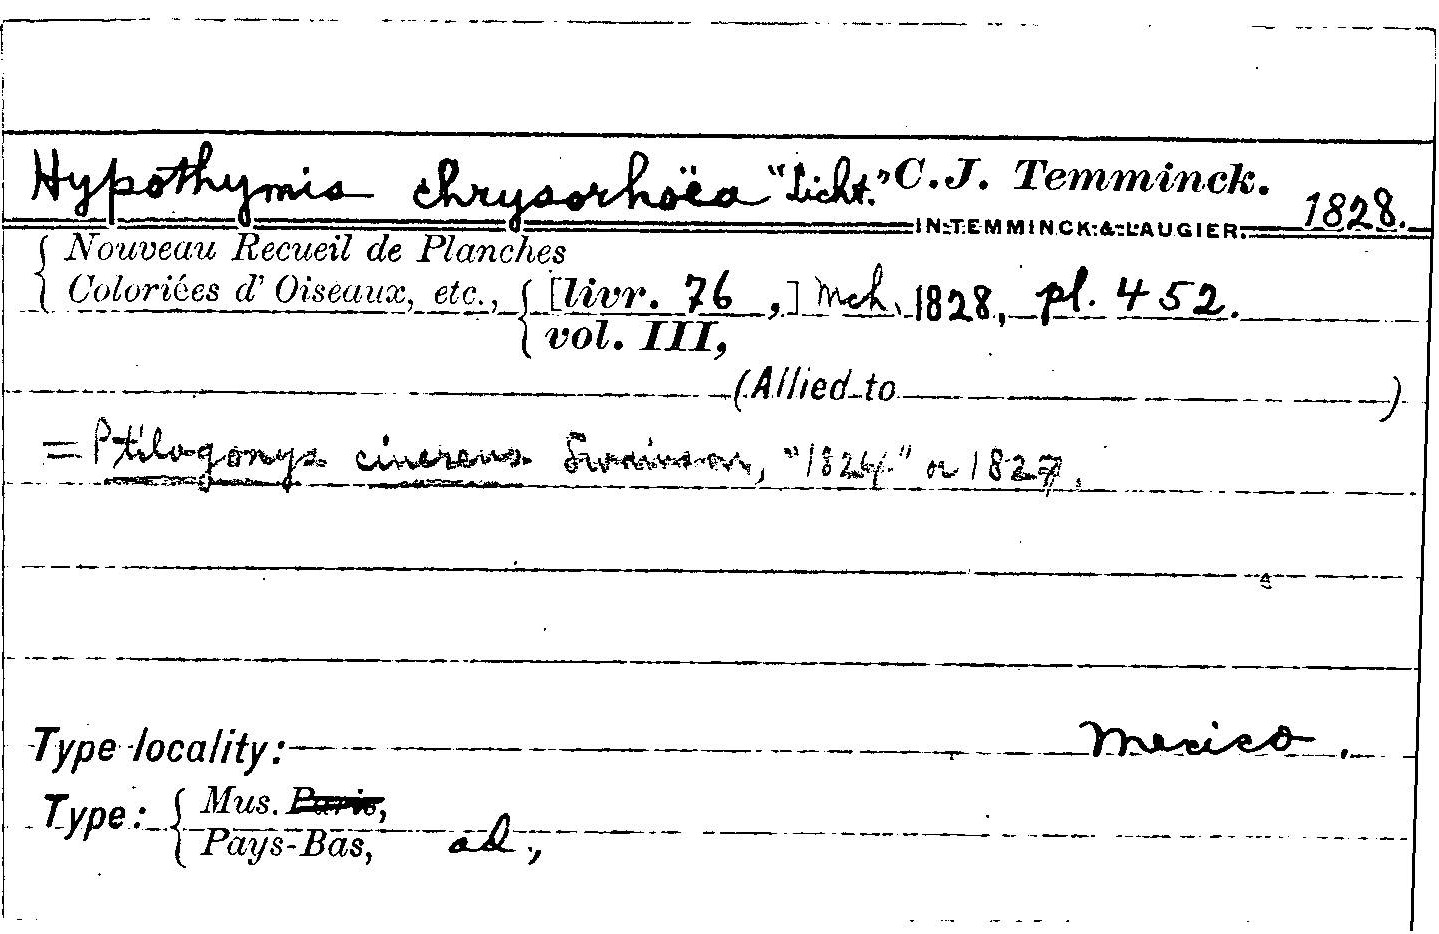 Hypothymis chrysorhöea "Licht." C. J. Temminck. 1828.
IN TEMMINCK & LAUGIER.
Nouveau Recueil de Planches
Coloriées d' Oiseaux, etc., [livr. 76 ,] Mch. 1828, pl. 452.
vol. III,
(Allied to )
= Ptilogonys cinereus Swainson, "1824" or 1827.
Type locality: Mexico.
Type: Mus. Paris,
Pays-Bas, ad.,